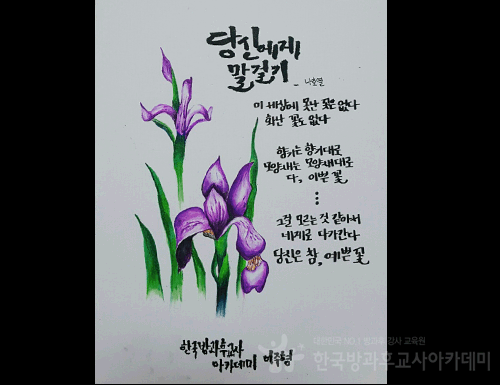 당신에게
말걸기
- 나호열
이 세상에 못난 꽃은 없다
화난 꽃도 없다
향기는 향기대로
모양새는 모양새대로
다, 이쁜 꽃
그걸 모르는 것 같아서
네게로 다가간다
당신은 참, 예쁜 꽃
한국방과후교사
아카데미
대한민국 NO.1 방과후 강사 교육원
한국방과후교사아카데미